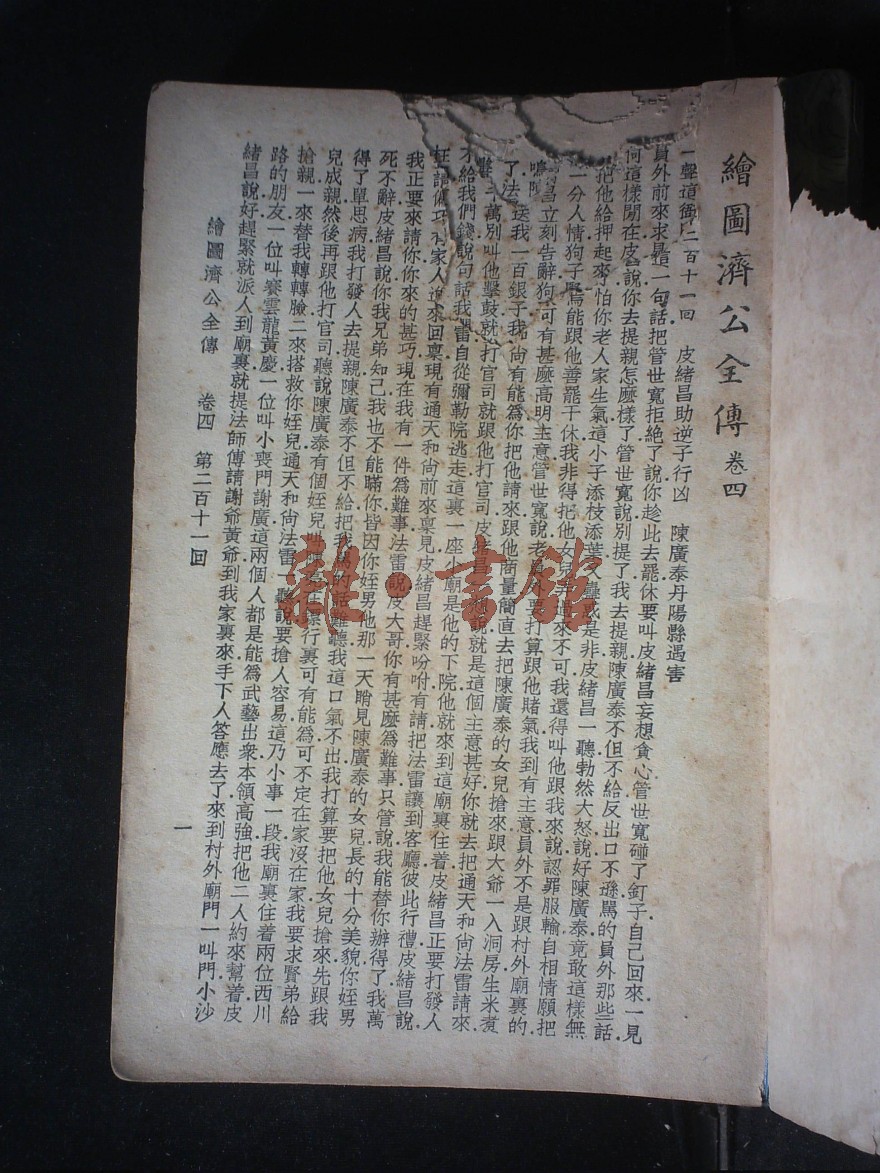 繪圖濟公全傳 卷四
二百十一回 皮緒昌助逆子行凶 陳廣泰丹陽縣遇害
員外前來求是這一句話把管世寬拒絕了說你趁此去罷休要叫皮緒昌妄想貪心管世寬碰了釘子自己回來一見
何這樣閒在皮說你去提親怎麼樣了管世寬說別提了我去提親陳廣泰不但不給反出口不遜罵的員外那些話
把他給押起來怕你老人家生氣這小子添枝添葉是非皮緒昌一聽勃然大怒說好陳廣泰竟敢這樣無
一分人情狗子焉能跟他善罷干休我非得把他女兒過來不可我還得叫他跟我來說認罪服輸自相情願把
昌立刻告辭狗可有甚麼高明主意管世寬說老打算跟他賭氣我到有主意員外不是跟村外廟裏的
了法送我一百銀子我尚有能爲你把他請來跟他商量簡直去把陳廣泰的女兒搶來跟大爺一入洞房生米煮
萬別叫他擊鼓就打官司就跟他打官司皮緒昌說就是這個主意甚好你就去把通天和尚法雷請來
不給我們錢說句話我雷自從彌勒院逃走這裏一座小廟是他的下院他就來到這廟裏住着皮緒昌正要打發人
家人進來回稟現有通天和尚前來稟見皮緒昌趕緊吩咐有請把法雷讓到客廳彼此行禮皮緒昌說
我正要來請你你來的甚巧現在我有一件爲難事法雷說皮大哥你有甚麼爲難事只管說我能替你辦得了我萬
死不辭皮緒昌說你我兄弟知己我也不能瞞你皆因你姪男他那一天瞧見陳廣泰的女兒長的十分美貌你姪男
得了單思病我打發人去提親陳廣泰不但不給把我罵的話難聽我這口氣不出我打算要把他女兒搶來先跟我
兒成親然後再跟他打官司聽說陳廣泰有個姪兒叫鏢行裏可有能爲可不定在家沒在家我要求賢弟給
搶親一來替我轉轉臉二來搭救你姪兒通天和尚法雷一聽說要搶人容易這乃小事一段我廟裏住着兩位西川
路的朋友一位叫賽雲龍黃慶一位叫小喪門謝廣這兩個人都是能爲武藝出衆本領高強把他二人約來幫着皮
緒昌說好趕緊就派人到廟裏就提法師傅請謝爺黃爺到我家裏來手下人答應去了來到村外廟門一叫門小沙
繪圖濟公全傳 卷四 第二百十一回 一
雜·書館